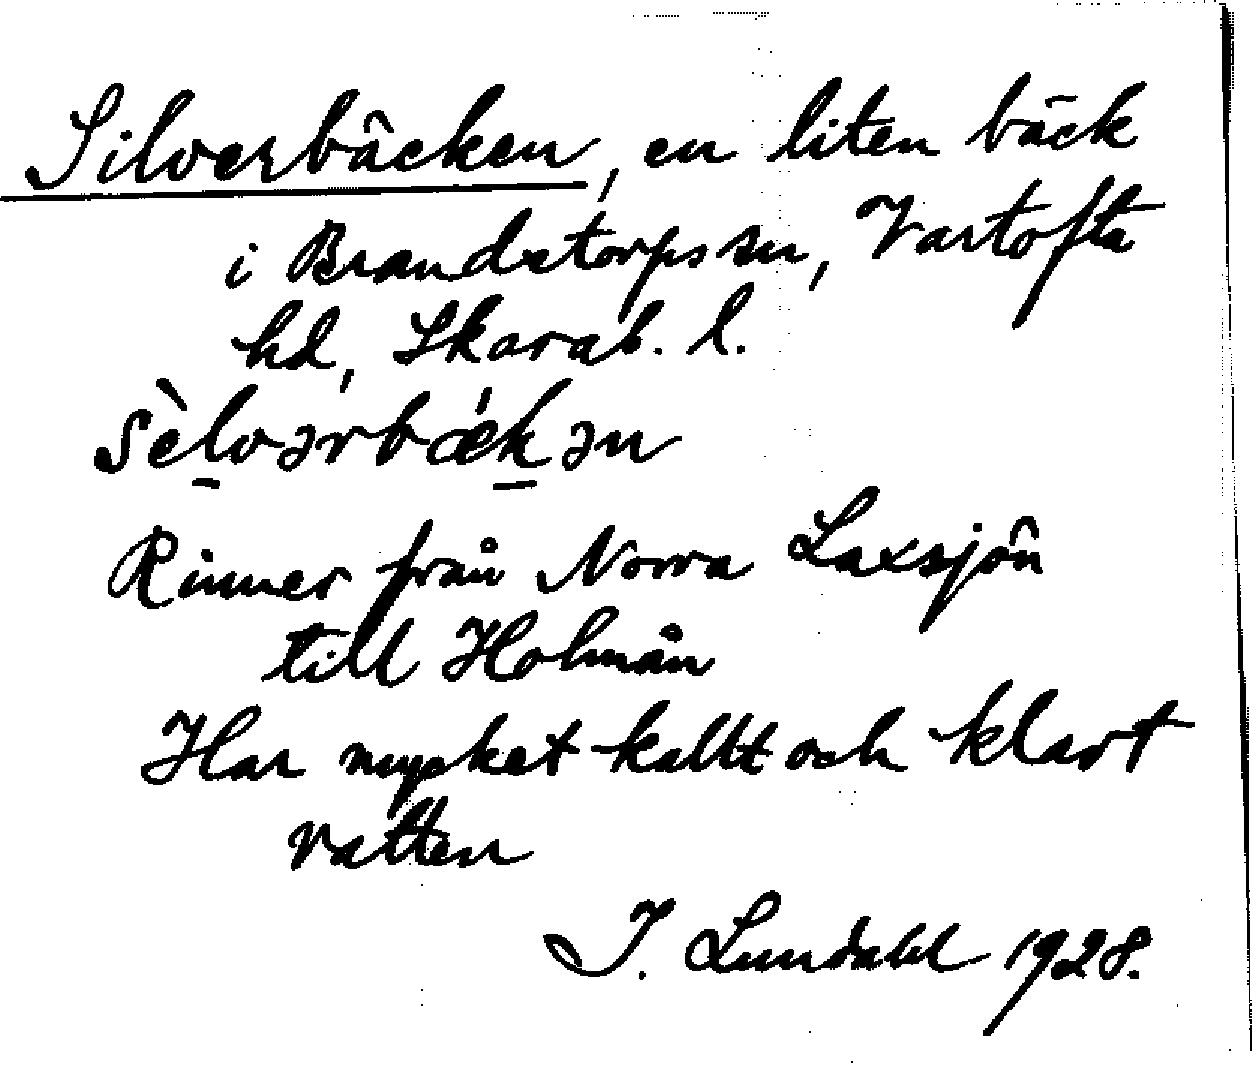 Silverbäcken, en liten bäck
i Brandstorps sn, Vartofta
hd, Skarab. l.
sèlvərbǽkən
Rinner från Norra Laxsjön
till Holmån
Har mycket kallt och klart
vatten
J. Lundahl 1928.